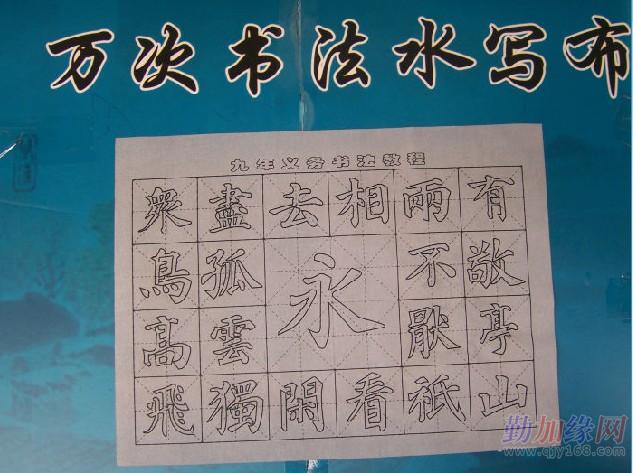 万次书法水写布
九年义务书法教程
衆盡去相兩有
鳥孤永不敬
髙雲厭亭
飛獨閑看祗山
勤加缘网
www.qjy168.com